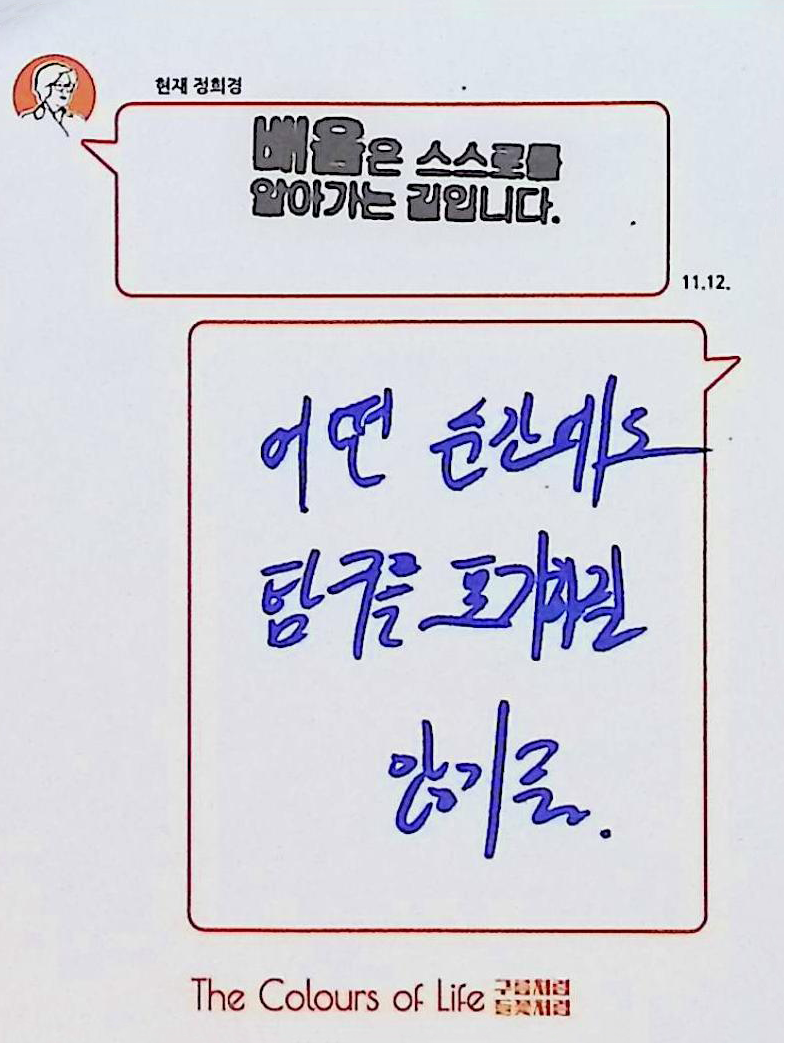 현재 정희경
배움은 스스로를
알아가는 길입니다.
11.12.
어떤 순간에도
탐구를 포기하질
않기를.
The Colours of Life 구름처럼
들꽃처럼